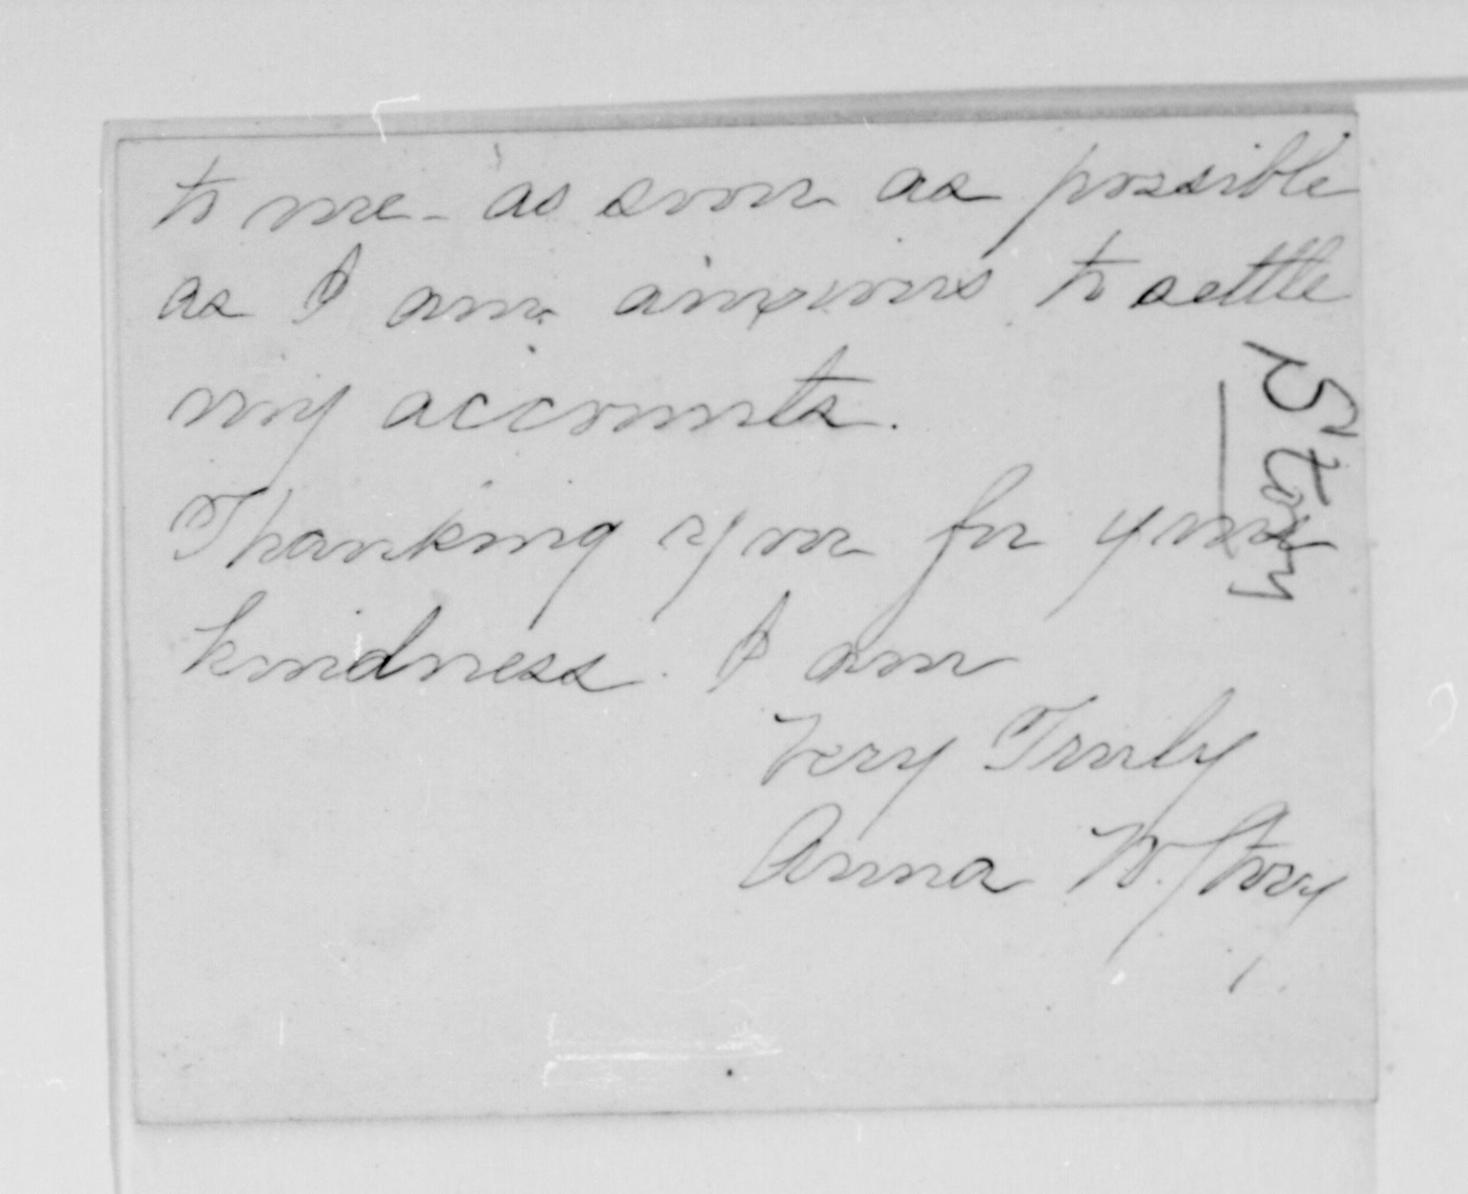 to me - as soon as possible
as I am anxious to settle
my accounts.
Thanking you for your
kindness. I am
Very Truly
Anna W. Story
Story